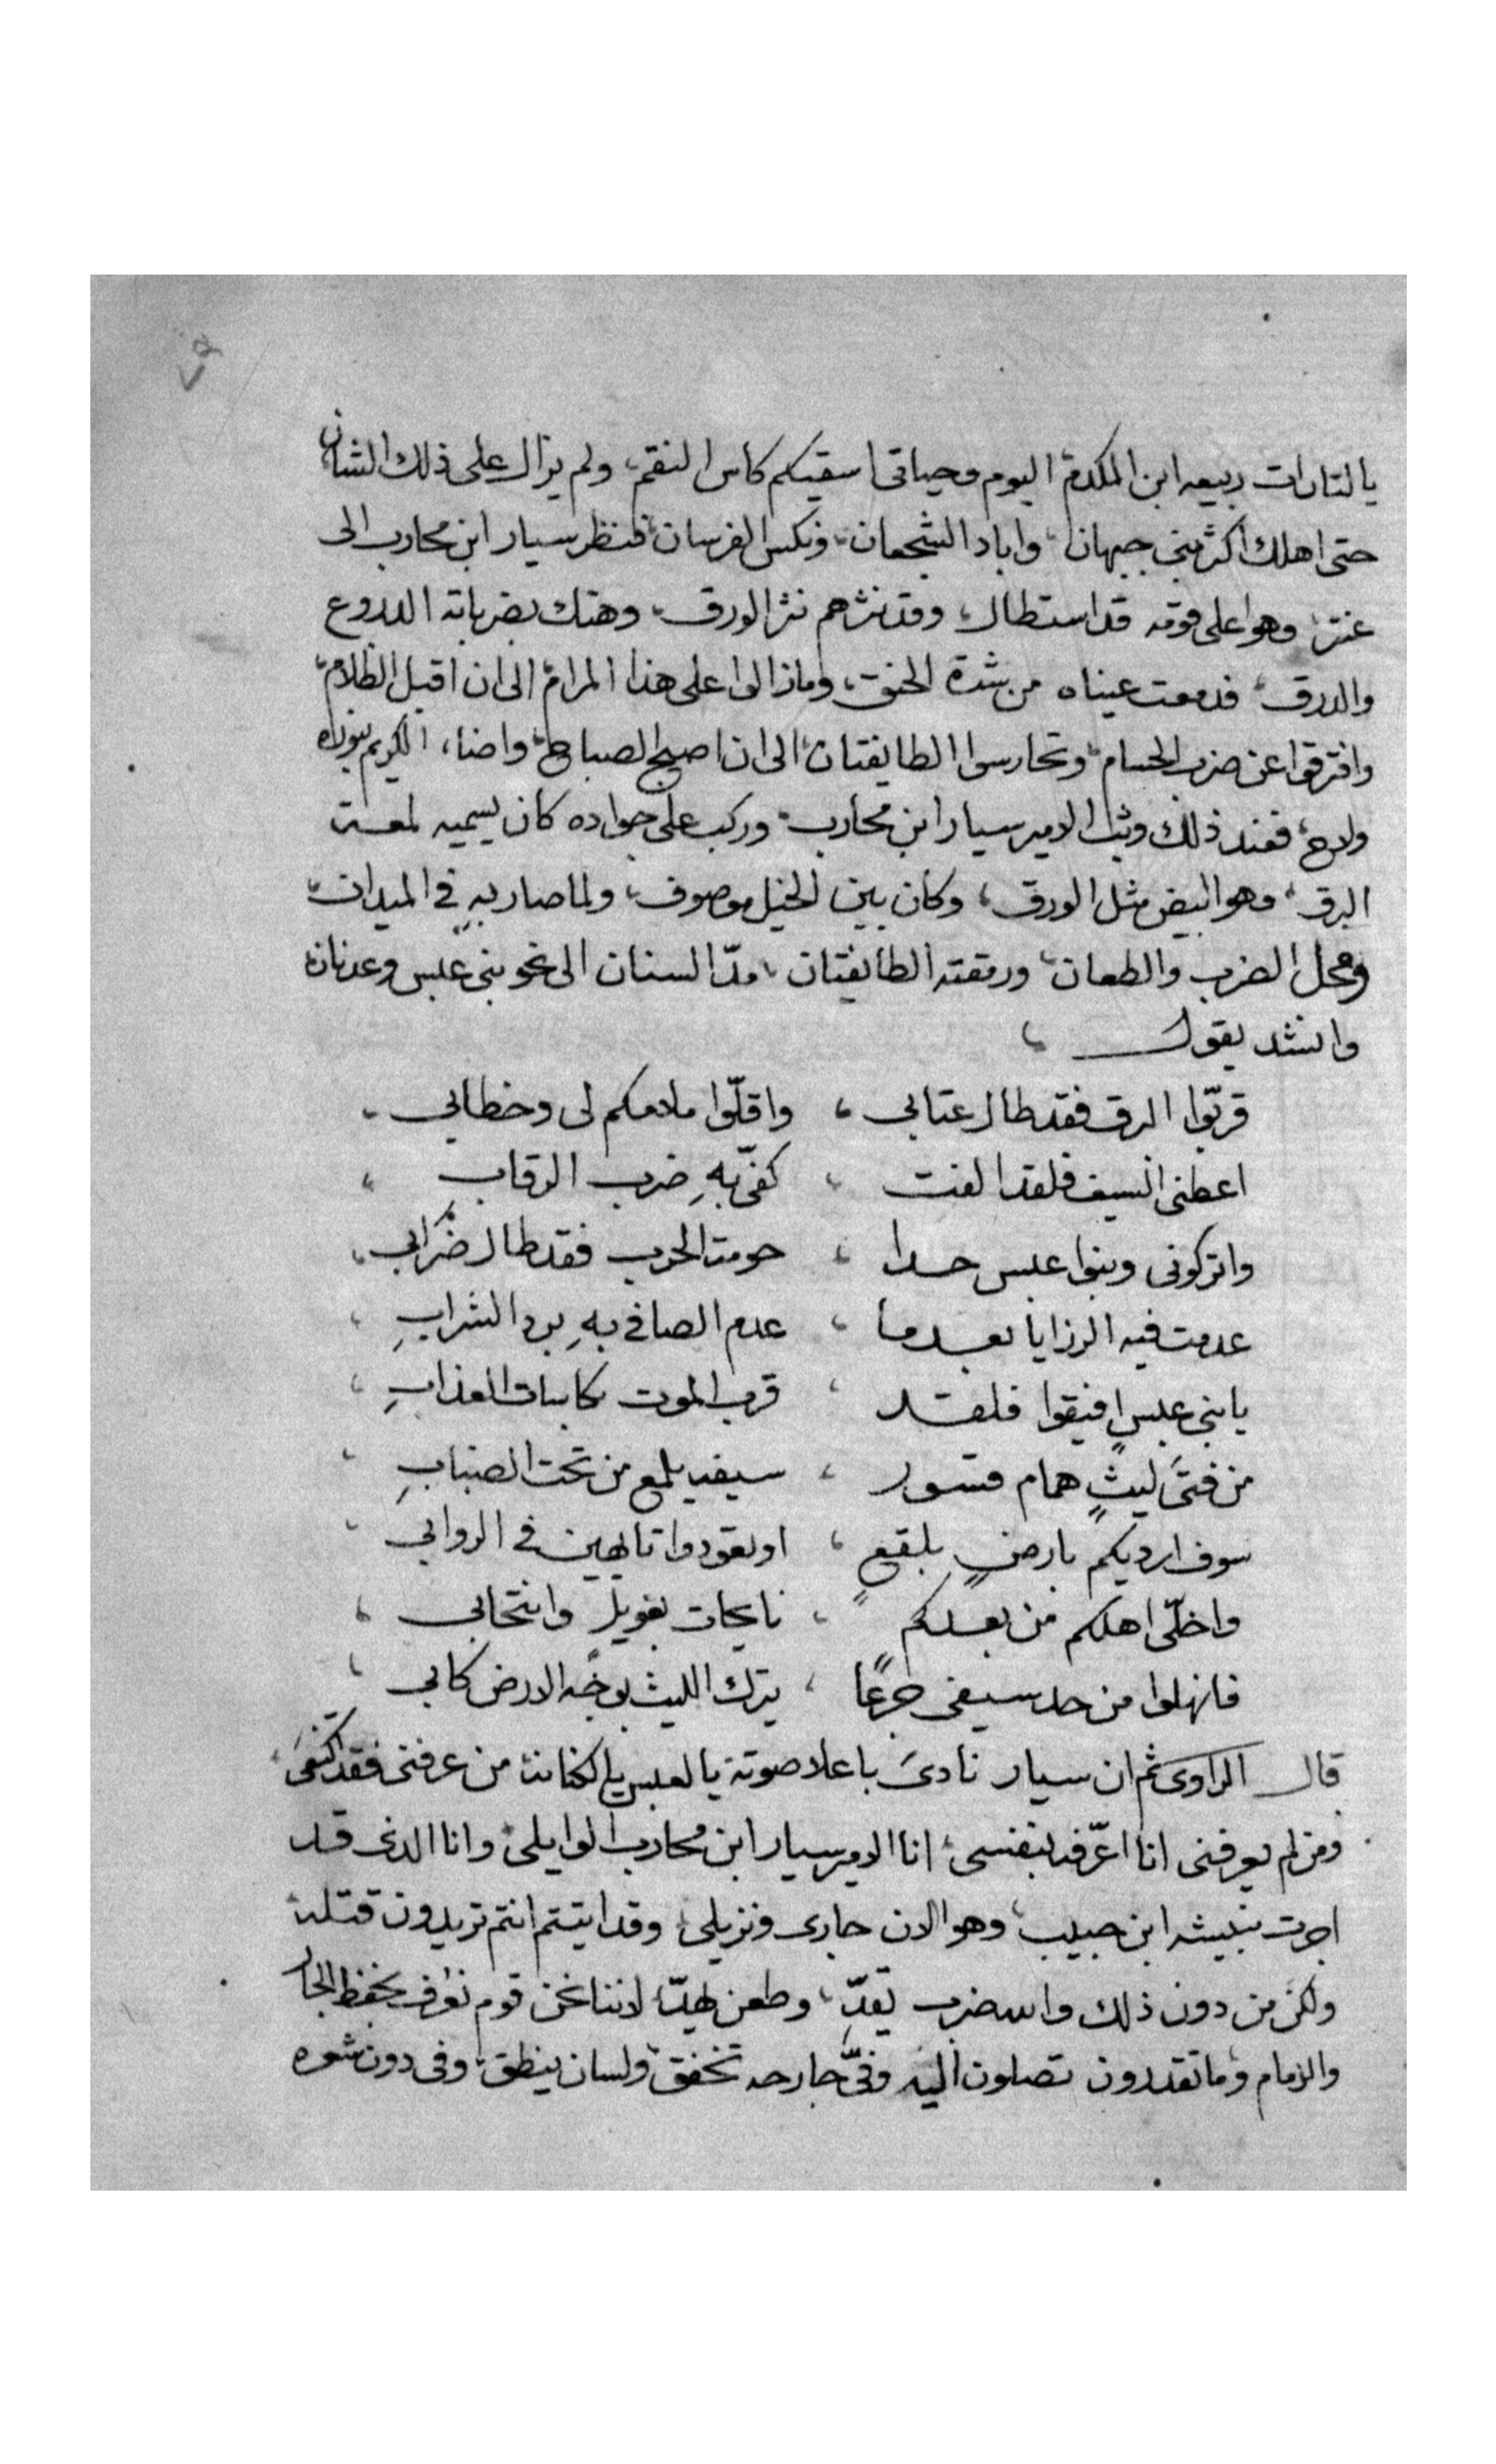 ٧٩
يا لتارات ربيعه ابن المكدم اليوم وحياتى اسقيكم كاس النقم، ولم يزال على ذلك الشان
حتى اهلك اكثر بنى جيهان، واباد الشجعان، ونكس الفرسان، فنظر سيار ابن محارب الى
عنتر، وهو على قومه قد استطال، وقد نثرهم نثر الورق، وهتك بضرباته الدروع
والدرق، فدمعت عيناه من شدة الحنق، وما زالوا على هذا المرام الى ان اقبل الظلام،
وافترقوا عن ضرب الحسام، وتحارسوا الطايفتان، الى ان اصبح الصباح، واضاء الكريم بنوره
ولاح، فعند ذلك وثب الامير سيار ابن محارب، وركب على جواده كان يسميه لمعة
البرق، وهو ابيض مثل الورق، وكان بين الخيل موصوف، ولما صار به في الميدان،
ومحل الضرب والطعان، ورمقته الطايفتان، مدّ السنان الى نحو بنى عبس وعدنان
وانشد يقول ،
قربّوا البرق فقد طال عتابي ، واقلّوا ملامكم لى وخطابي ،
اعطنى السيف فلقد الفت ، كفّى بهِ ضرب الرقابِ ،
واتركونى وبنوا عبس حدا ، حومة الحرب فقد طال ضرابي ،
عدمت فيه الرزايا بعدما ، عدم الصافى بهِ برد الشرابِ ،
يا بنى عبسٍ افيقوا فلقد ، قرب الموت بكاسات العذابِ ،
من فتىً ليثٍ همام قسور ، سيفه يلمع من تحت الضبابِ ،
سوف ارديكم بارضٍ بلقعٍ ، او تعودوا تايهين في الروابي ،
واخلّى اهلكم من بعدكم ، نايحات بعويل وانتحابي ،
فانهلوا من حد سيفى جرعًا ، يترك الليث بوجه الارض كابي ،
قال الراوى ثم ان سيار نادىَ باعلا صوته يا لعبس يا لكنانه من عرفنى فقد اكتفىَ
ومن لم يعرفنى انا اعرّفه بنفسى، انا الامير سيار ابن محارب الوايلى، وانا الذى قد
اجرت نبيشه ابن حبيب، وهو الان جارى ونزيلى، وقد اتيتم انتم تريدون قتله
ولكن من دون ذلك والله ضرب يقدّ، وطعن يهدّ، لاننا نحن قوم نعرف بحفظ الجار
والزمام، وما تقدرون تصلون اليه وفىّ جارحه تخفق، ولسان ينطق، وفى دون شعره